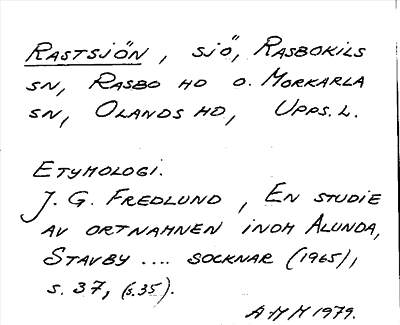 RASTSJÖN, SJÖ, RASBOKILS
SN, RASBO HD O. MORKARLA
SN, OLANDS HD, UPPS. L.
ETYMOLOGI.
J. G. FREDLUND, EN STUDIE
AV ORTNAMNEN INOM ALUNDA,
STAVBY .... SOCKNAR (1965),
S. 37, (S.35).
AMM 1979.